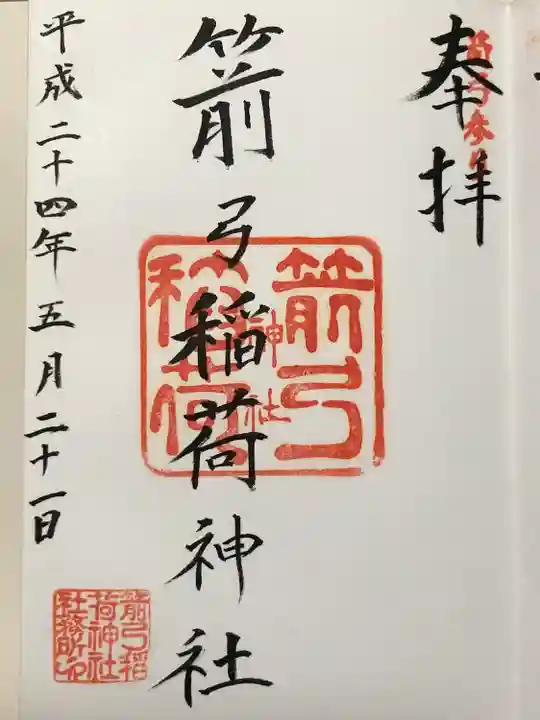 奉拝
箭弓稲荷神社
箭弓
稲荷
神社
平成二十四年五月二十一日
箭弓稲
荷神社
社務所印